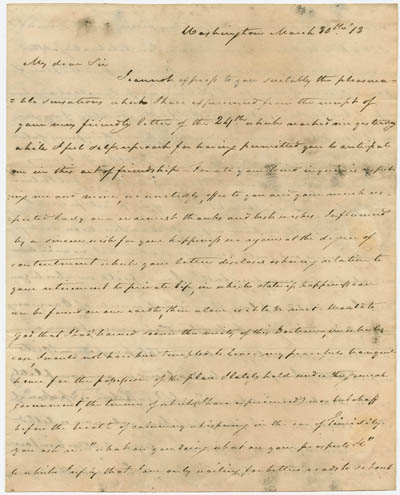 Washington March 30th 13
My dear Sir
I cannot express to you suitably the pleasura-
-ble sensations which I have experienced from the receipt of
your very friendly letter of the 24th which reached me yesterday
while I feel self reproach for having permitted you to anticipate
me in this act of friendship. For your kind inquiries respect-
ing me and mine, we unitedly offer to you and your much res-
pected Lady our warmest thanks and best wishes. Influenced
by a sincere wish for your happiness we rejoice at the degree of
contentment which your letter discloses as having relation to
your retirement to private life, in which state if happiness can
be found on our earth, then alone is it to be met. Would to
God that I had learned sooner the verity of this doctrine, in which
case I would not have been tempted to leave my peaceful & tranquil
home for the possession of the place I lately held under the general
government, the tenure of which (I have experienced) is but chaff
before the breath of calumny whispering in the ear of
you ask me "what are you doing what are your prospects &c"
to which I reply that I am only waiting for better roads to set out